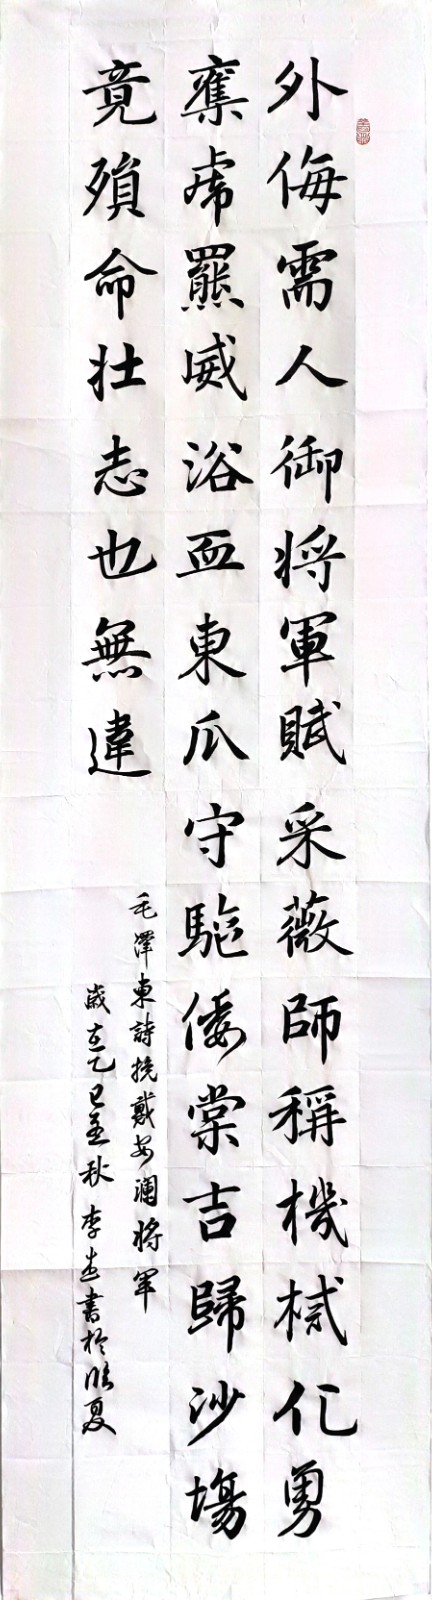 外侮需人御將軍賦采薇師稱機械化勇
奪虎羆威浴血東瓜守驅倭棠吉歸沙場
竟殞命壯志也無違
毛澤東詩挽戴安瀾將軍
歲在乙巳至秋李 書於臨夏